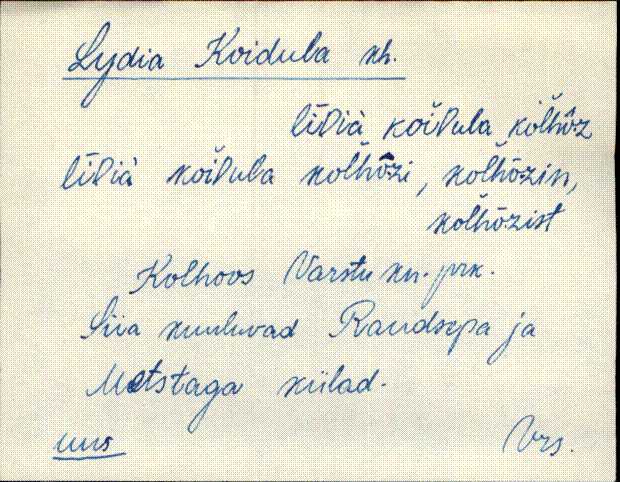 Lydia Koidula kh.
līDià koiDula kolhō̭z
līDià koiDula kolhō̭zi, kolhō̭zin,
kolhō̭zist
Kolhoos Varstu kn. prk.
Siia kuuluvad Raudsepa ja
Metstaga külad.
uus Vrs.